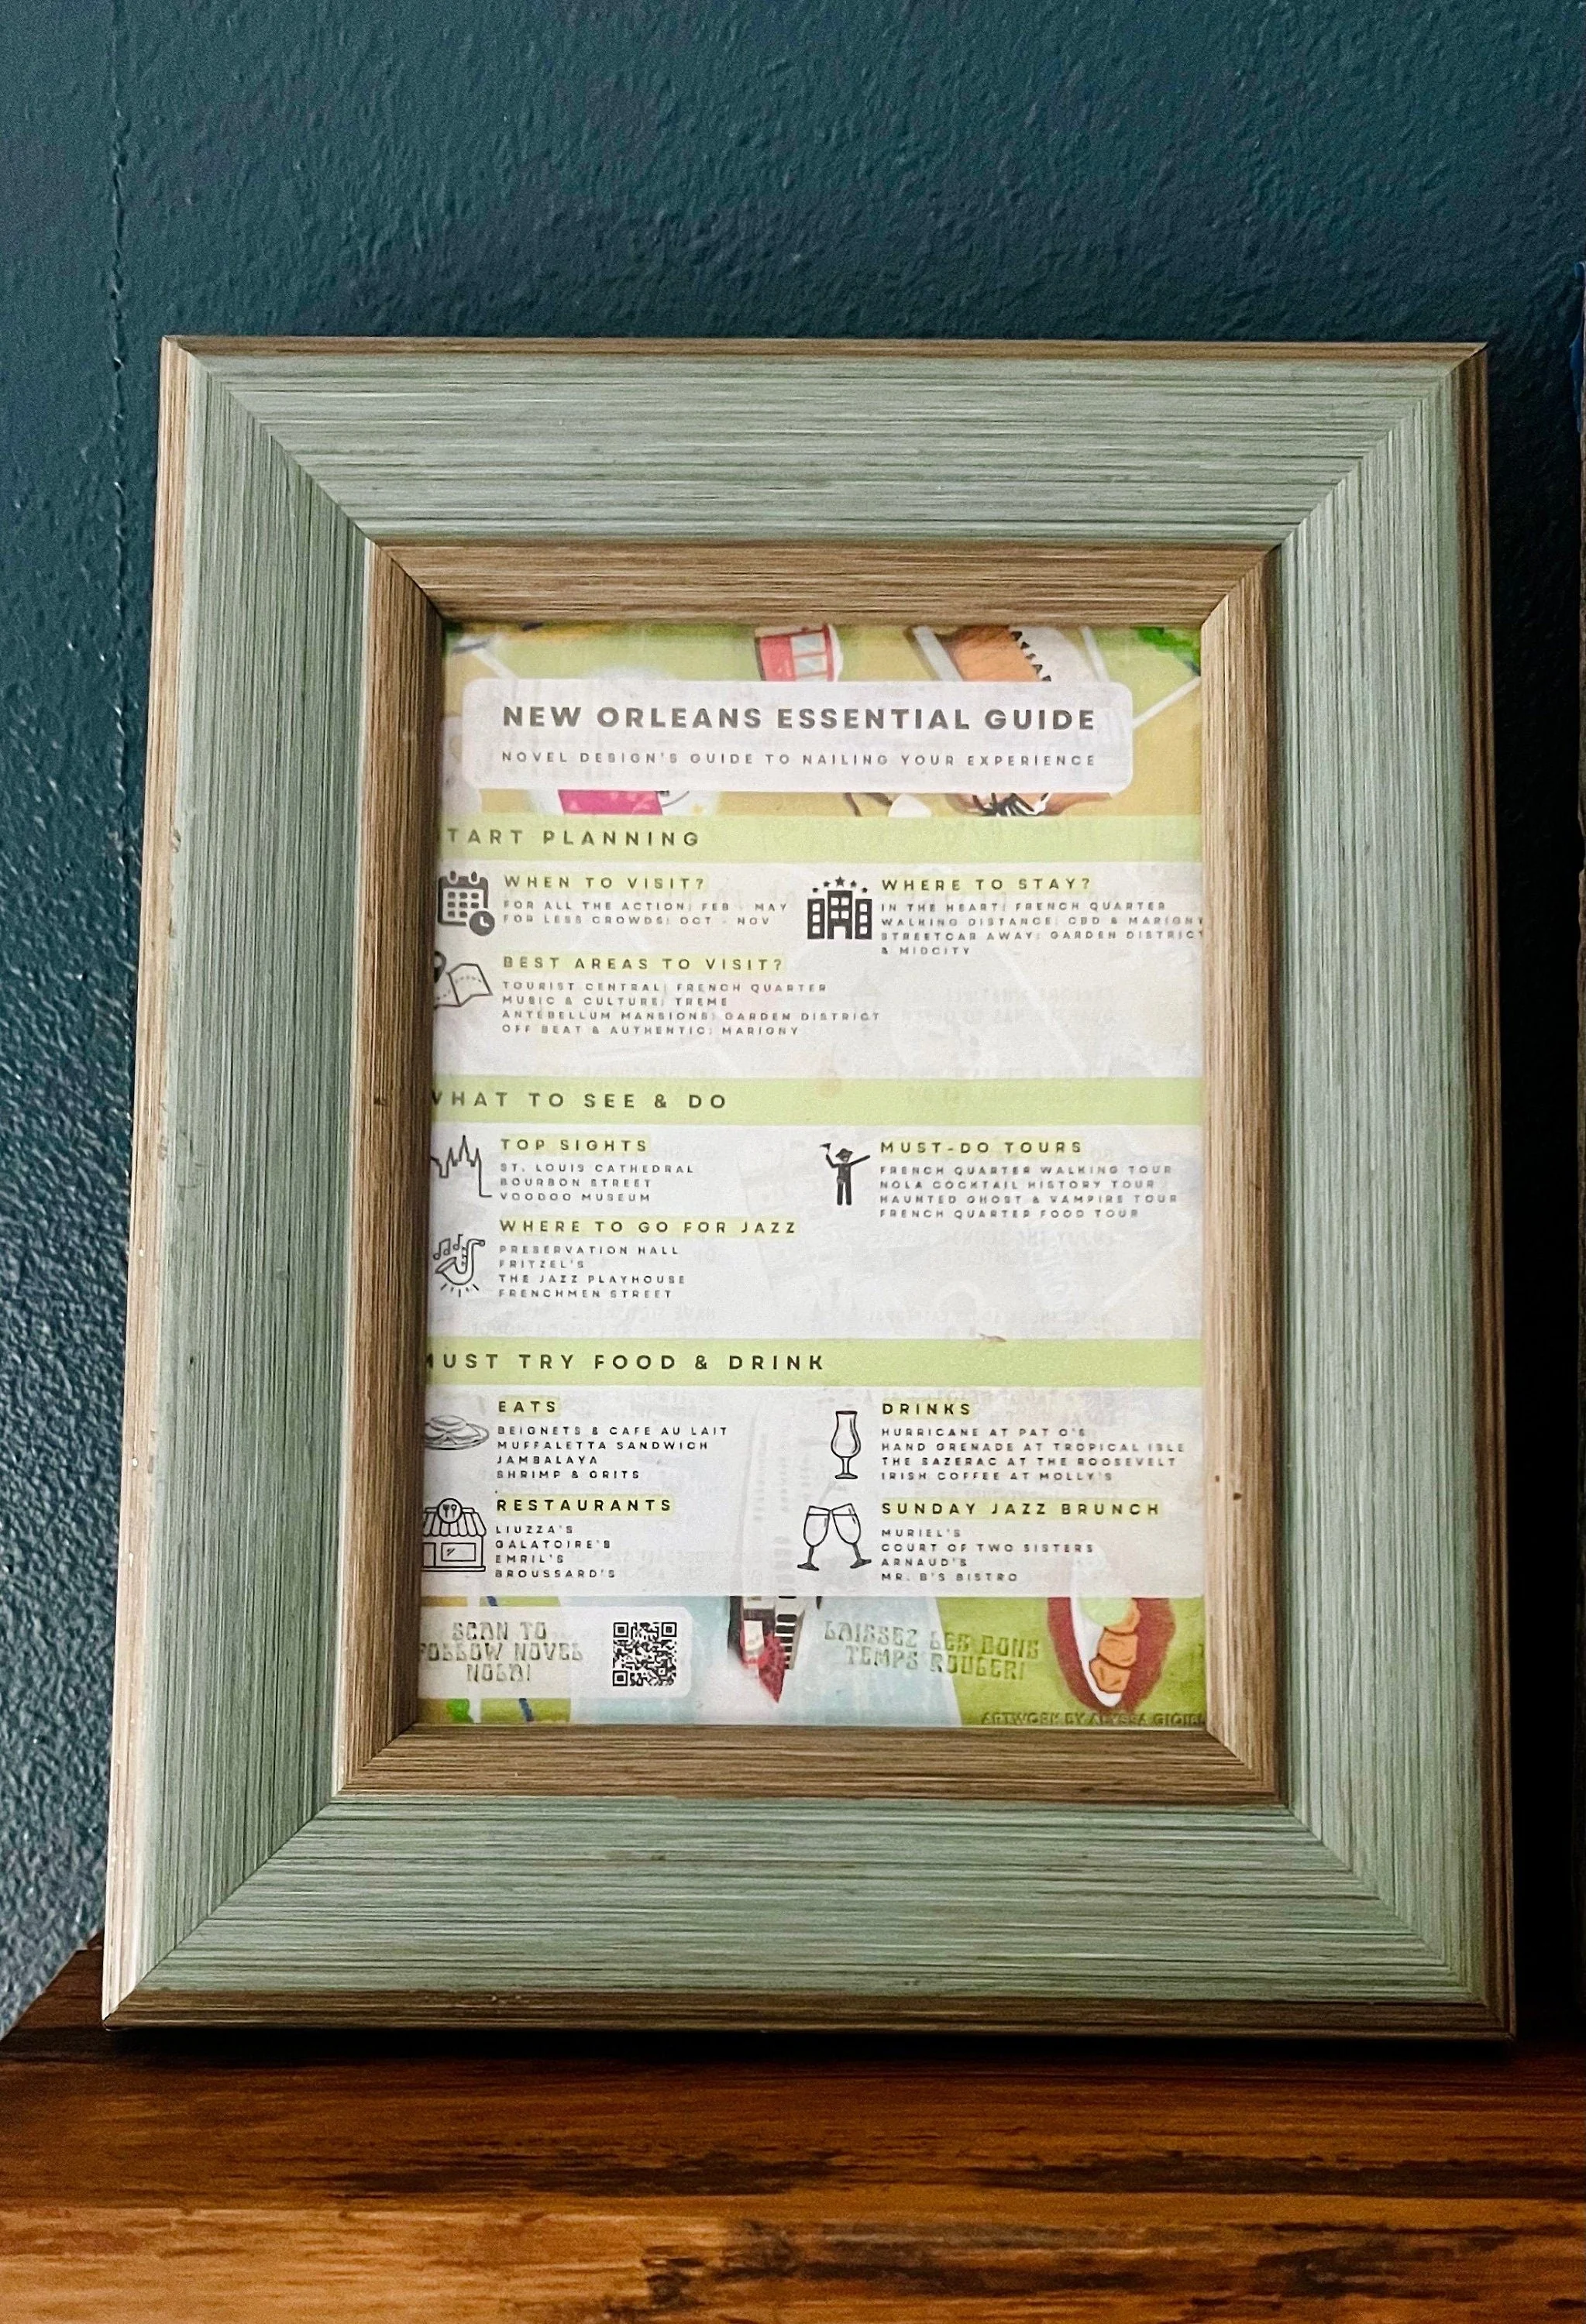 NEW ORLEANS ESSENTIAL GUIDE
NOVEL DESIGN'S GUIDE TO NAILING YOUR EXPERIENCE
TART PLANNING
WHEN TO VISIT?
FOR ALL THE ACTION: FEB - MAY
FOR LESS CROWDS: OCT - NOV
WHERE TO STAY?
IN THE HEART: FRENCH QUARTER
WALKING DISTANCE: CBD & MARIGNY
STREETCAR AWAY: GARDEN DISTRICT
& MIDCITY
BEST AREAS TO VISIT?
TOURIST CENTRAL: FRENCH QUARTER
MUSIC & CULTURE: TREME
ANTEBELLUM MANSIONS: GARDEN DISTRICT
OFF BEAT & AUTHENTIC: MARIGNY
WHAT TO SEE & DO
TOP SIGHTS
ST. LOUIS CATHEDRAL
BOURBON STREET
VOODOO MUSEUM
MUST-DO TOURS
FRENCH QUARTER WALKING TOUR
NOLA COCKTAIL HISTORY TOUR
HAUNTED GHOST & VAMPIRE TOUR
FRENCH QUARTER FOOD TOUR
WHERE TO GO FOR JAZZ
PRESERVATION HALL
FRITZEL'S
THE JAZZ PLAYHOUSE
FRENCHMEN STREET
MUST TRY FOOD & DRINK
EATS
BEIGNETS & CAFE AU LAIT
MUFFALETTA SANDWICH
JAMBALAYA
SHRIMP & GRITS
DRINKS
HURRICANE AT PAT O'S
HAND GRENADE AT TROPICAL ISLE
THE SAZERAC AT THE ROOSEVELT
IRISH COFFEE AT MOLLY'S
RESTAURANTS
LIUZZA'S
GALATOIRE'S
EMRIL'S
BROUSSARD'S
SUNDAY JAZZ BRUNCH
MURIEL'S
COURT OF TWO SISTERS
ARNAUD'S
MR. B'S BISTRO
SCAN TO
FOLLOW NOVEL
NOLA!
LAISSEZ LES BONS
TEMPS ROULER!
ARTWORK BY ALYSSA